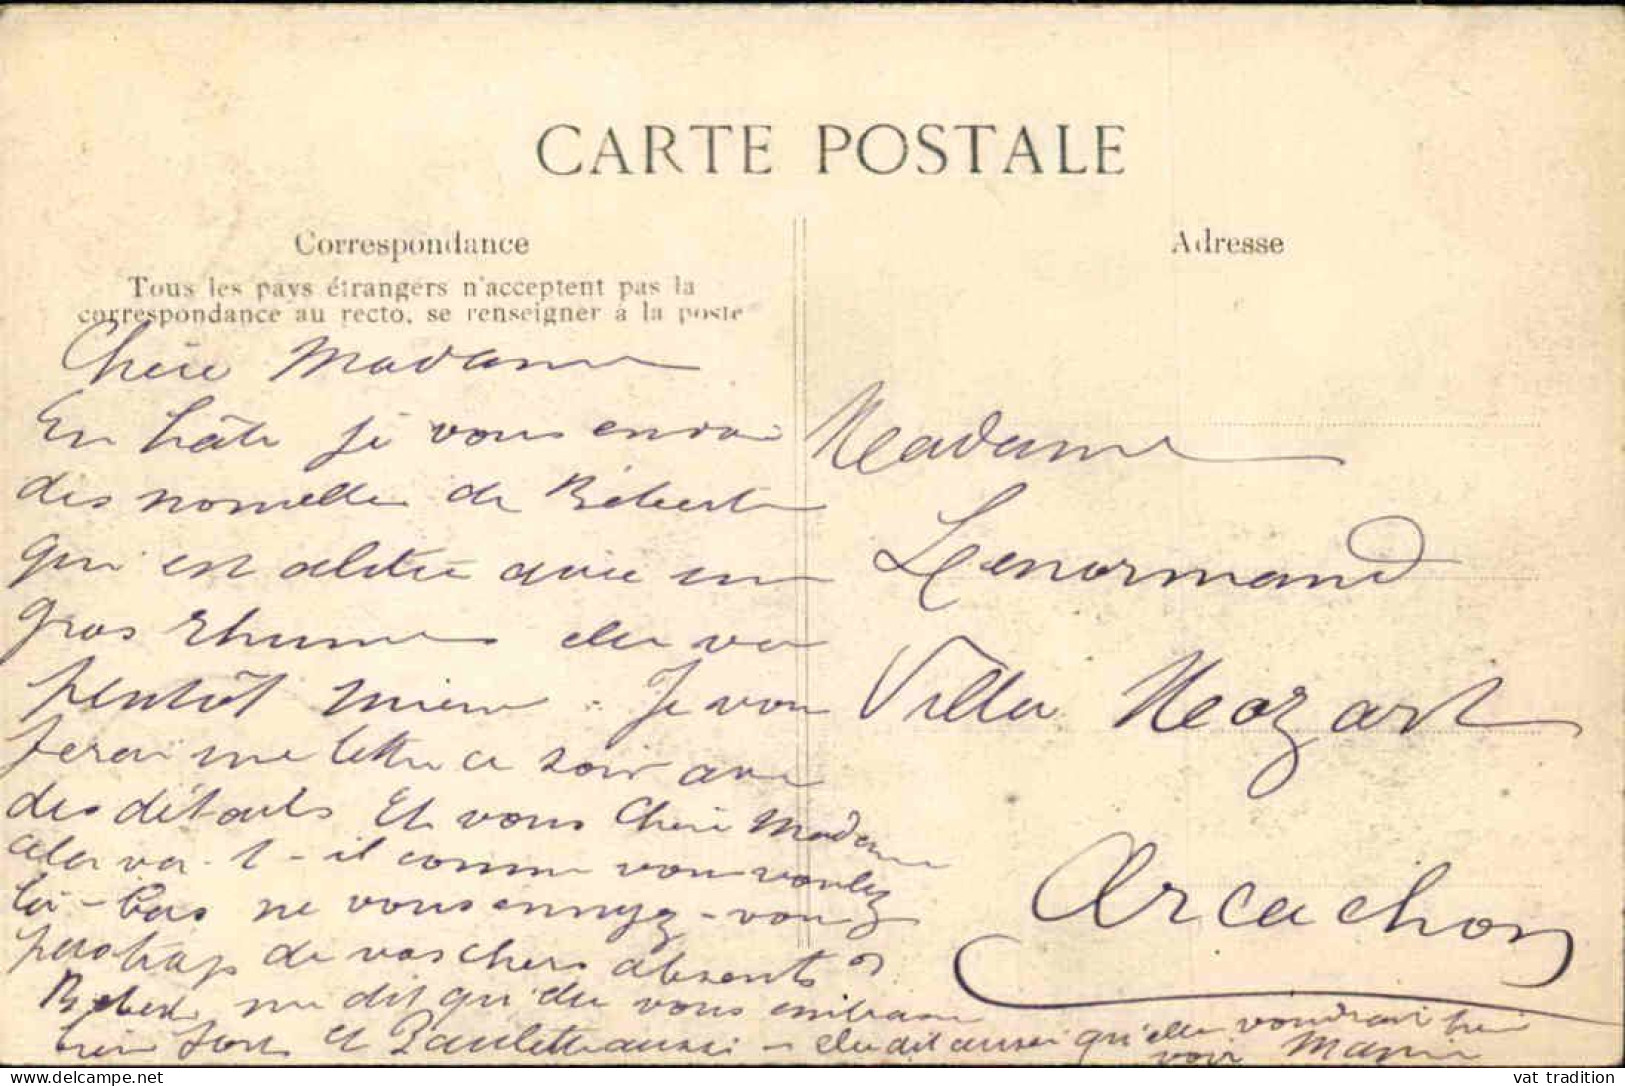 CARTE POSTALE
Correspondance
Tous les pays étrangers n'acceptent pas la
correspondance au recto, se renseigner à la poste
Chère Madame
En hâte je vous envoi
des nouvelles de Béberte
qui est alitée avec un
gros rhume elle va
pentôt mieux. Je vous
ferai une lettre ce soir avec
des détails Et vous Chère Madame
cela va-t-il comme vous voulez
là-bas ne vous ennuyez-vous
pas trop de vos chers absents ?
Béberte me dit qu'elle vous embrasse
bien fort et Paulette aussi - elle dit aussi qu'elle voudrai bien
voir Mamie
Adresse
Madame
Lenormand
Villa Mozart
Arcachon
vat tradition